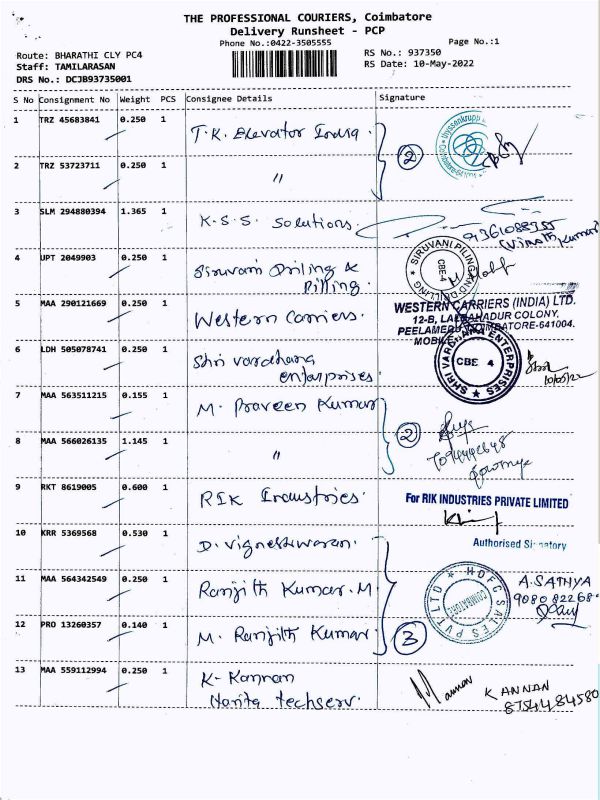 THE PROFESSIONAL COURIERS, Coimbatore
Delivery Runsheet - PCP
Phone No.:0422-3505555
Page No.:1
Route: BHARATHI CLY PC4
RS No.: 937350
Staff: TAMILARASAN
RS Date: 10-May-2022
DRS No.: DCJB93735001
S No Consignment No Weight PCS Consignee Details Signature
1 TRZ 45683841 0.250 1 T.K. Elevator India.
thyssenkrupp
2
2 TRZ 53723711 0.250 1 "
3 SLM 294880394 1.365 1 K.S.S. Solutions.
(Vinoth Kumar)
4 UPT 2049903 0.250 1 Siruvani Driling &
Pilling.
SIRUVANI PILING AND DRILLING
CBE-4
5 MAA 290121669 0.250 1 Western Carriers.
WESTERN CARRIERS (INDIA) LTD.
12-B, LALBAHADUR COLONY,
PEELAMEDU, COIMBATORE-641004.
6 LDH 505078741 0.250 1 Shri vardhana
enterprises.
SHRI VARDHANA ENTERPRISES
CBE 4
10/05/22
7 MAA 563511215 0.155 1 M. Praveen Kumar
2
8 MAA 566026135 1.145 1 "
9 RKT 8619005 0.600 1 RIK Industries.
For RIK INDUSTRIES PRIVATE LIMITED
Authorised Signatory
10 KRR 5369568 0.530 1 D. Vigneshwaran.
11 MAA 564342549 0.250 1 Ranjith Kumar.M
HDFC SALES PVT LTD
COIMBATORE
A.SATHYA
9080822268.
12 PRO 13260357 0.140 1 M. Ranjith Kumar
3
13 MAA 559112994 0.250 1 K- Kannan
Norita techserv.
KANNAN
8754484580